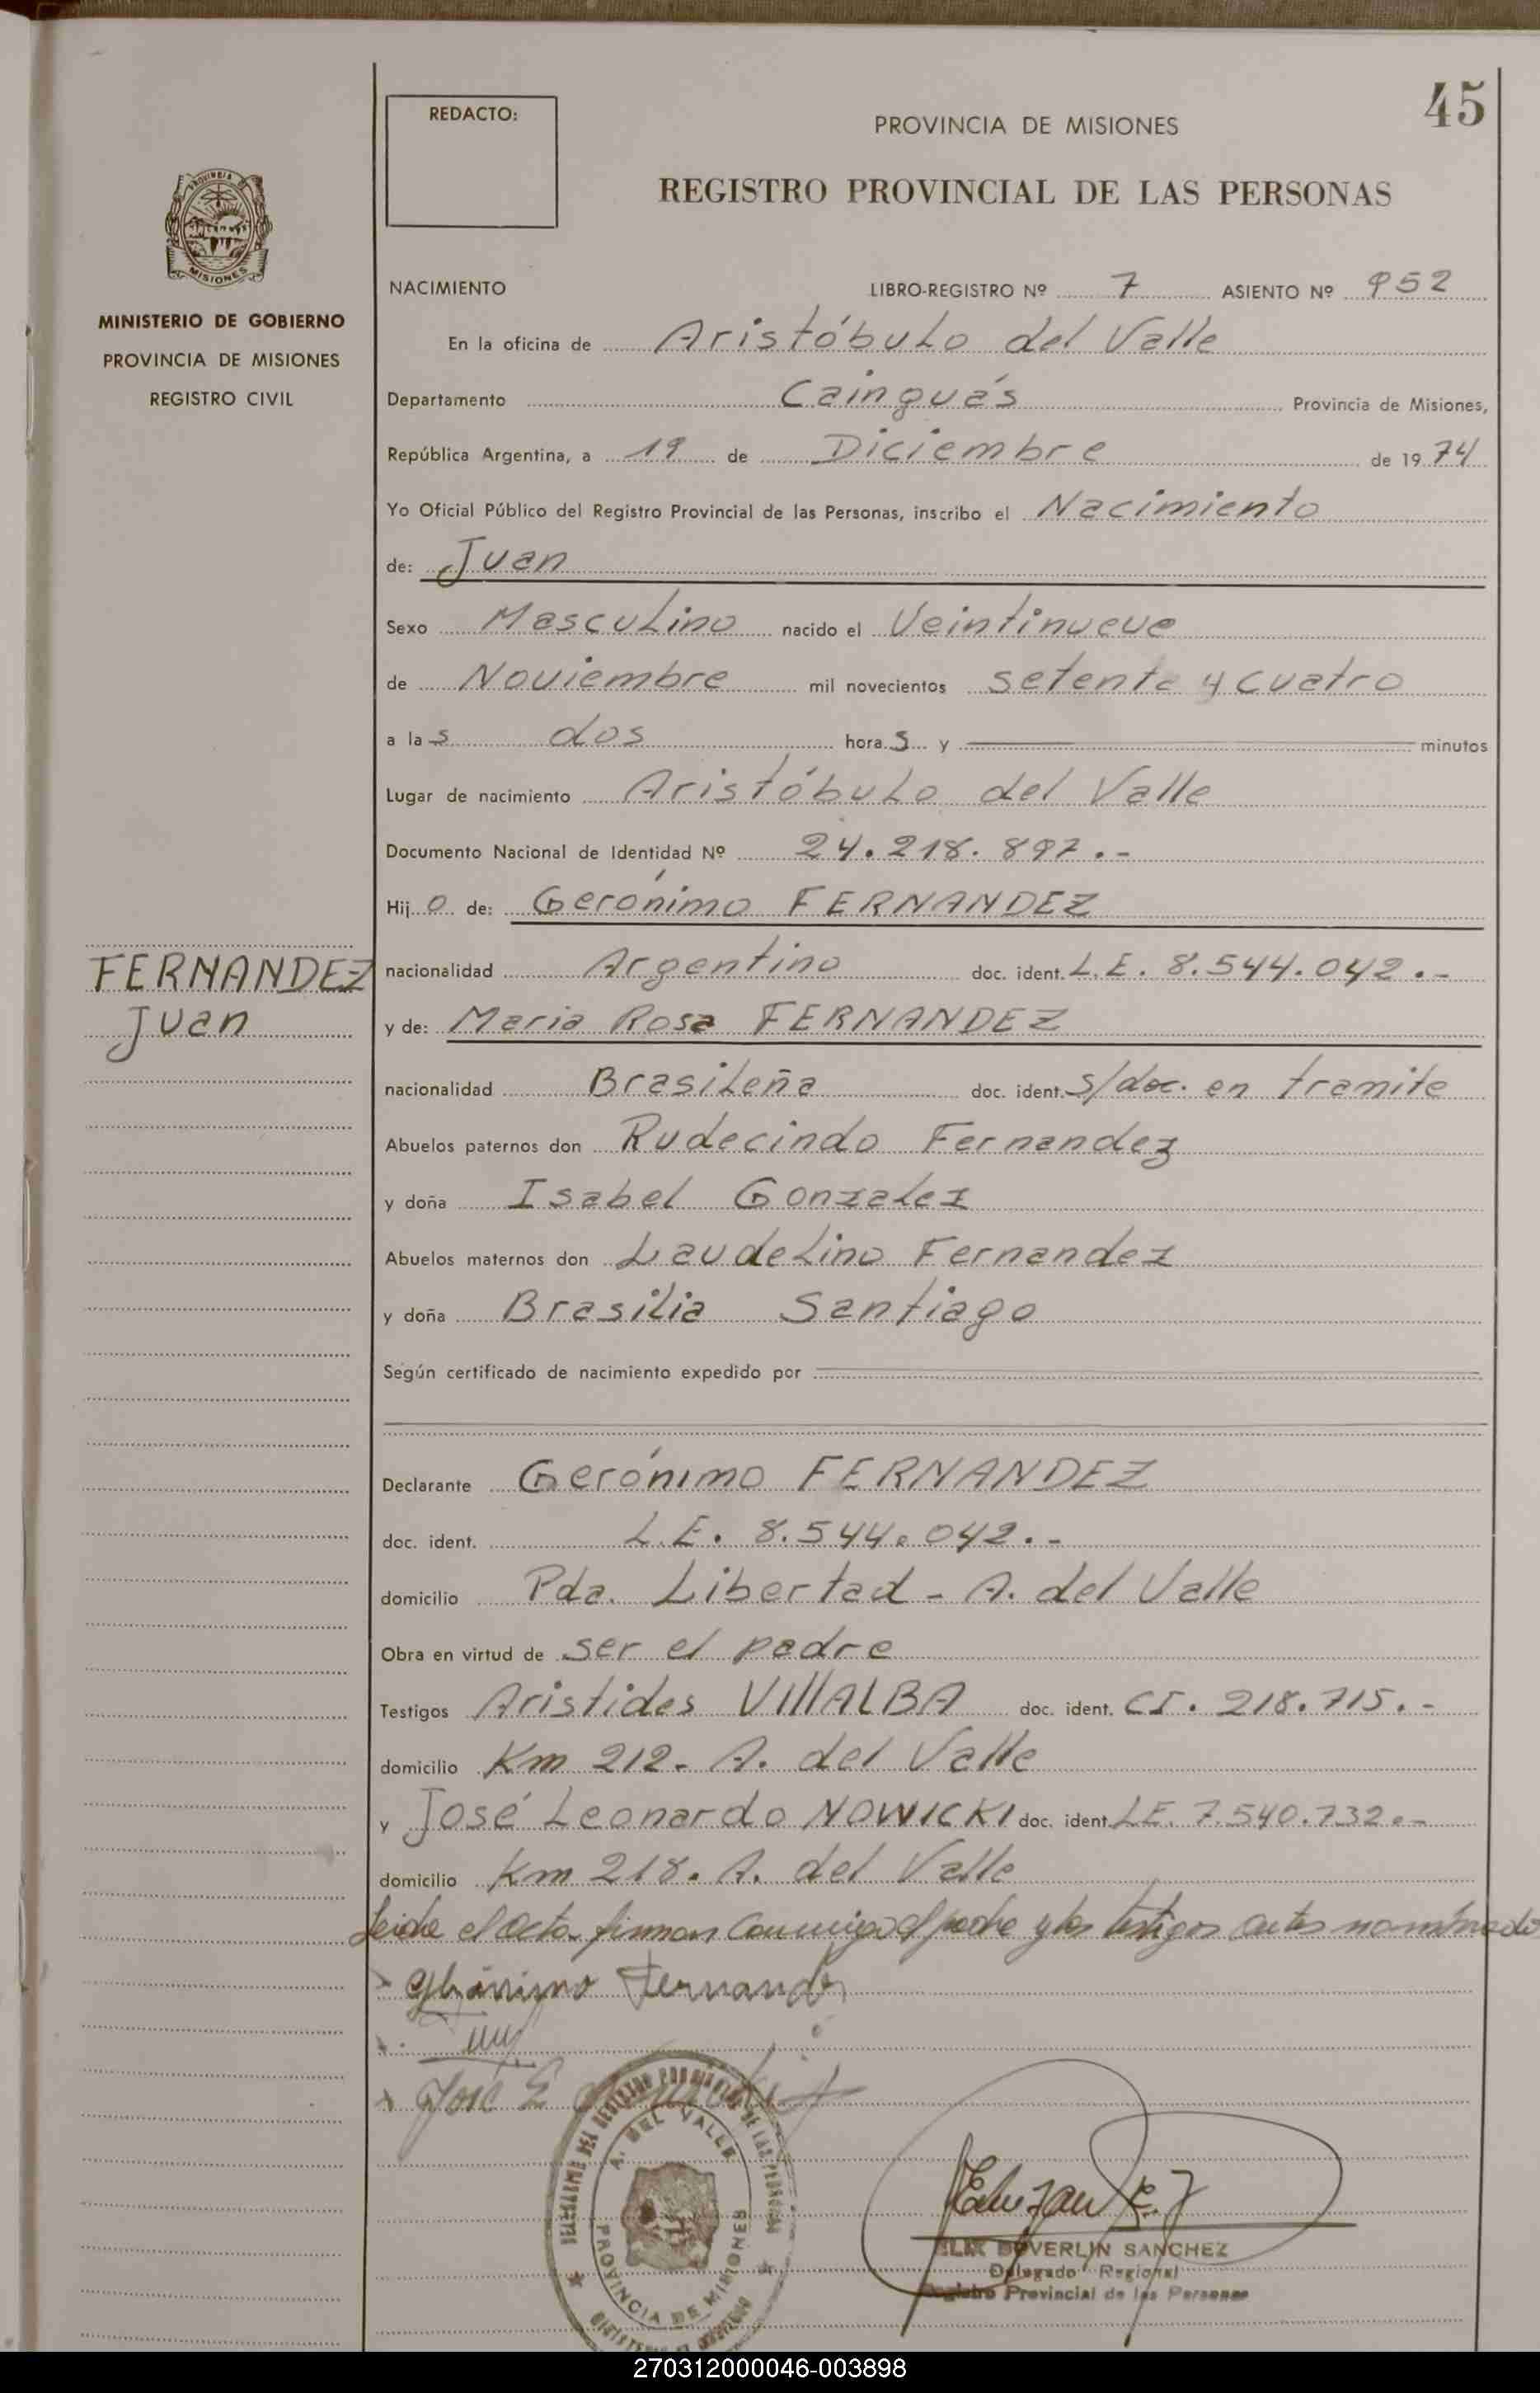 45
REDACTO:
PROVINCIA DE MISIONES
REGISTRO PROVINCIAL DE LAS PERSONAS
PROVINCIA DE
MISIONES
MINISTERIO DE GOBIERNO
PROVINCIA DE MISIONES
REGISTRO CIVIL
NACIMIENTO LIBRO-REGISTRO Nº 7 ASIENTO Nº 952
En la oficina de Aristóbulo del Valle
Departamento Cainguás Provincia de Misiones,
República Argentina, a 19 de Diciembre de 1974
Yo Oficial Público del Registro Provincial de las Personas, inscribo el Nacimiento
de: Juan
Sexo Masculino nacido el Veintinueve
de Noviembre mil novecientos setenta y cuatro
a las dos horas y minutos
Lugar de nacimiento Aristóbulo del Valle
Documento Nacional de Identidad Nº 24.218.897.-
Hijo de: Gerónimo FERNANDEZ
FERNANDEZ
Juan
nacionalidad Argentino doc. ident. L.E. 8.544.042.-
y de: Maria Rosa FERNANDEZ
nacionalidad Brasileña doc. ident. s/doc. en tramite
Abuelos paternos don Rudecindo Fernandez
y doña Isabel Gonzalez
Abuelos maternos don Laudelino Fernandez
y doña Brasilia Santiago
Según certificado de nacimiento expedido por
Declarante Gerónimo FERNANDEZ
doc. ident. L.E. 8.544.042.-
domicilio Pda. Libertad - A. del Valle
Obra en virtud de ser el padre
Testigos Aristides VIllALBA doc. ident. CI. 218.715.-
domicilio Km 212- A. del Valle
y José Leonardo NOWICKI doc. ident. LE. 7.540.732.-
domicilio Km 218. A. del Valle
Leida el acta firman conmigo el padre y los testigos antes nominados
Fernandez
José L
A. DEL VALLE
PROVINCIA DE MISIONES
BOVERLIN SANCHEZ
Delegado Regional
Registro Provincial de las Personas
270312000046-003898